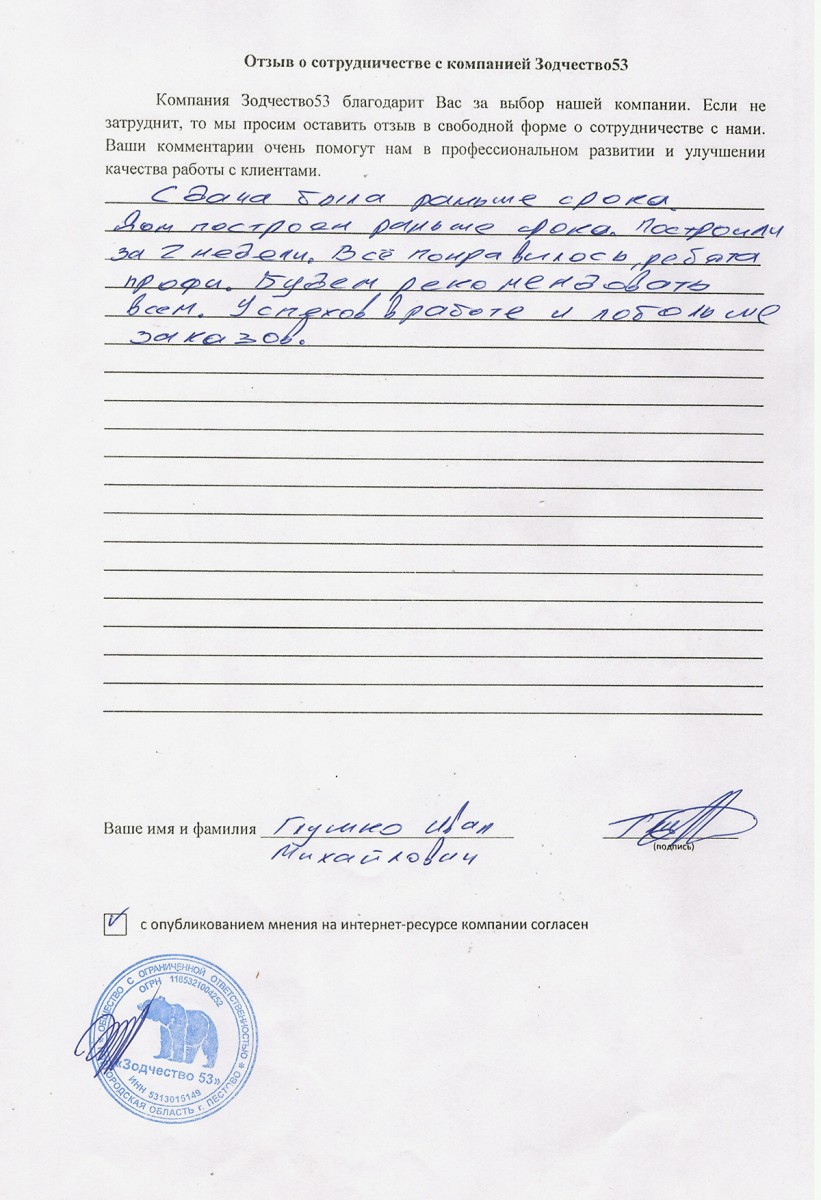 Отзыв о сотрудничестве с компанией Зодчество53
Компания Зодчество53 благодарит Вас за выбор нашей компании. Если не
затруднит, то мы просим оставить отзыв в свободной форме о сотрудничестве с нами.
Ваши комментарии очень помогут нам в профессиональном развитии и улучшении
качества работы с клиентами.
Сдача была раньше срока.
Дом построен раньше срока. Построили
за 2 недели. Всё понравилось, ребята
профи. Будем рекомендовать
всем. Успехов в работе и побольше
заказов.
Ваше имя и фамилия Глушко Иван
Михайлович
(подпись)
с опубликованием мнения на интернет-ресурсе компании согласен
ОБЩЕСТВО С ОГРАНИЧЕННОЙ ОТВЕТСТВЕННОСТЬЮ
ОГРН 1185321004252
«Зодчество 53»
ИНН 5313015149
ОБЛАСТЬ г. ПЕСТОВО